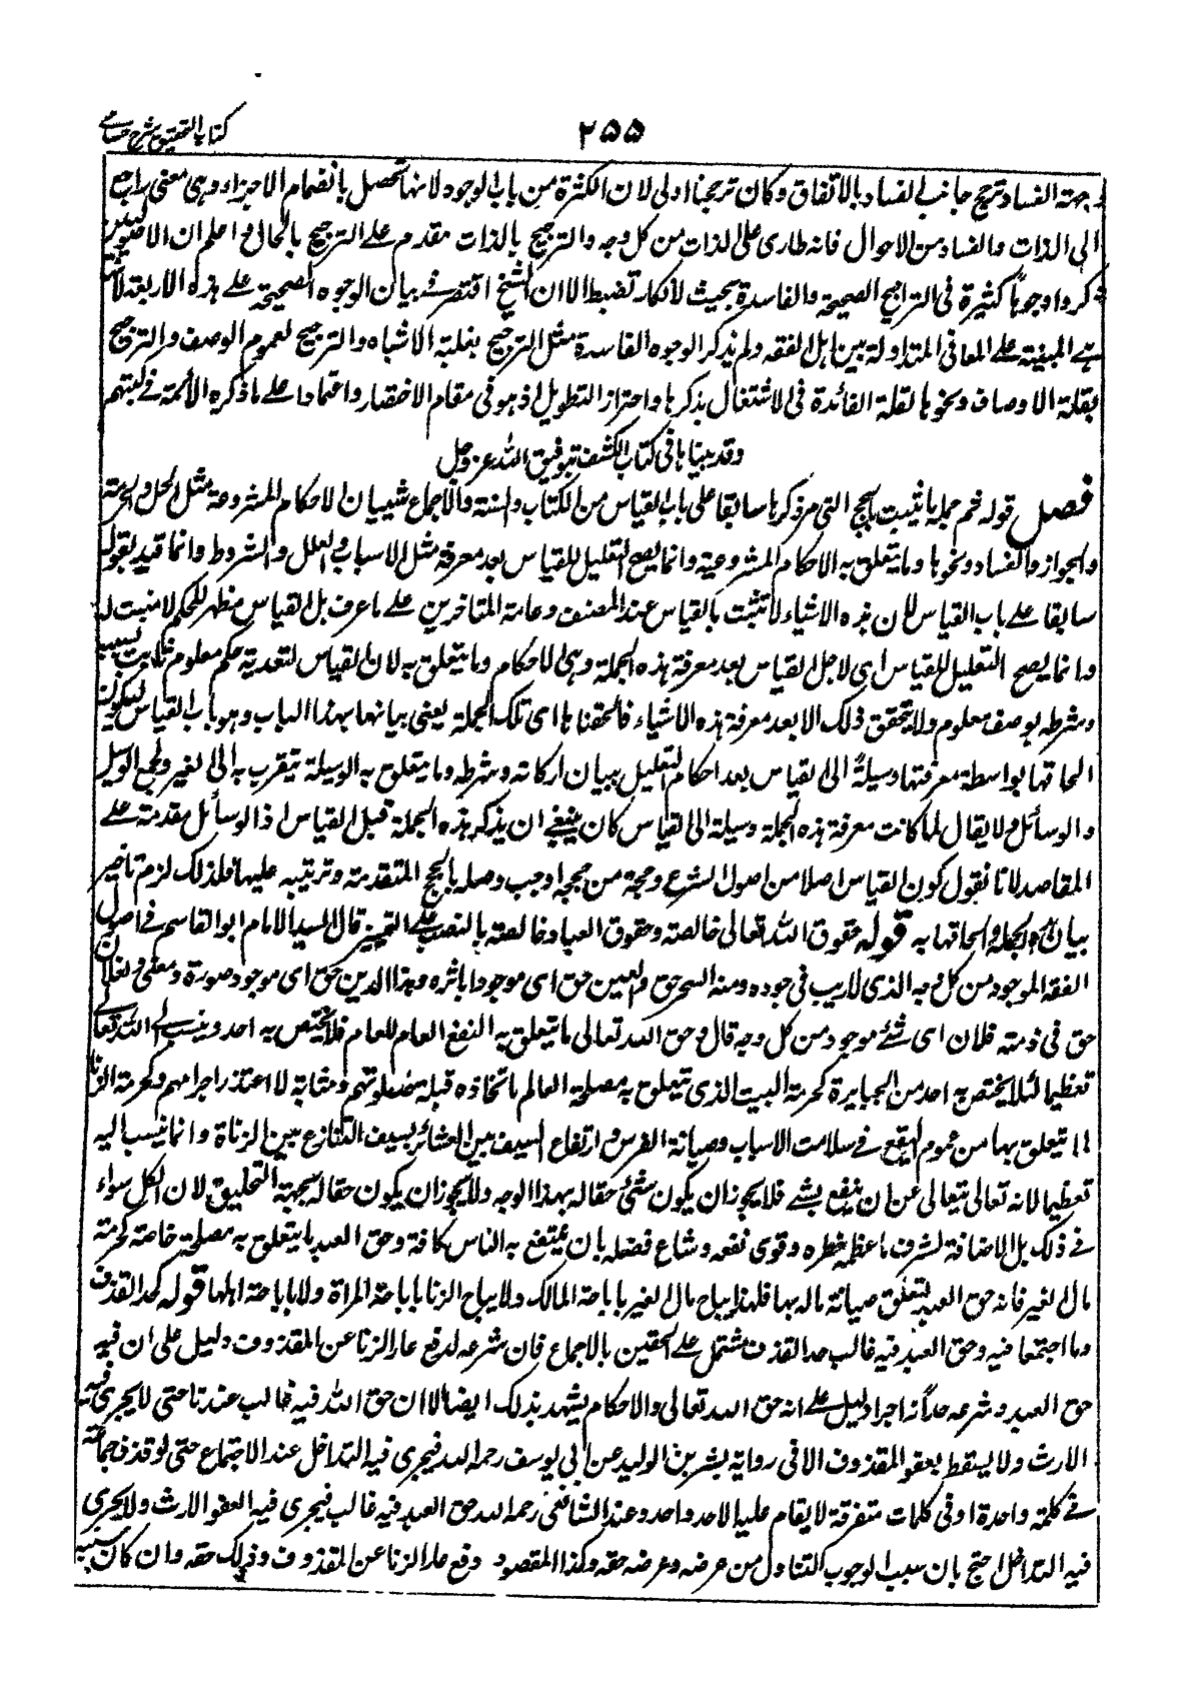 كتاب التحقيق شرح حسامي
٢٥٥
وجهة الفساد ترجح جانب الفساد بالاتفاق وكان ترجيحنا اولى لان الكثرة من باب الوجود لانها تحصل بانضمام الاجزاء وهي معنى راجع
الى الذات والفساد من الاحوال فانه طارى على الذات من كل وجه والترجيح بالذات مقدم على الترجيح بالحال واعلم ان الاصوليين
ذكروا وجوها كثيرة فى التراجيح الصحيحة والفاسدة بحيث لا تكاد تضبط الا ان الشيخ اقتصر فى بيان الوجوه الصحيحة على هذه الاربعة لانها
هى المبنية على المعانى المتداولة بين اهل الفقه ولم يذكر الوجوه الفاسدة مثل الترجيح بغلبة الاشباه والترجيح لعموم الوصف والترجيح
بقلة الاوصاف ونحوها لقلة الفائدة فى الاشتغال بذكرها واحتراز التطويل اذ هو فى مقام الاختصار واعتمادا على ما ذكره الأئمة فى كتبهم
وقد بيناها فى كتاب الكشف بتوفيق الله عز وجل
فصل قوله ثم جملة ما يثبت بالحجج التى مر ذكرها سابقا على باب القياس من الكتاب والسنة والاجماع شيئان الاحكام المشروعة مثل الحل والحرمة
والجواز والفساد ونحوها وما يتعلق به الاحكام المشروعية وانما يصح التعليل للقياس بعد معرفة مثل الاسباب والعلل والشروط وانما قيد بقوله
سابقا على باب القياس لان هذه الاشياء لا تثبت بالقياس عند المصنف وعامة المتاخرين على ما عرف بل القياس مظهر للحكم لا مثبت له
وانما يصح التعليل للقياس اى لاجل القياس بعد معرفة هذه الجملة وهى الاحكام وما يتعلق به لان القياس لتعدية حكم معلوم ثابت بسببه
وشرطه بوصف معلوم ولا يتحقق ذلك الا بعد معرفة هذه الاشياء فالحقناها اى تلك الجملة يعنى بيانها بهذا الباب وهو باب القياس ليكون
الحاقها بواسطة معرفتها وسيلة الى القياس بعد احكام التعليل ببيان اركانه وشرطه وما يتعلق به الوسيلة ما يتقرب به الى الغير والجمع الوسل
والوسائل ولا يقال لما كانت معرفة هذه الجملة وسيلة الى القياس كان ينبغى ان يذكر هذه الجملة قبل القياس اذ الوسائل مقدمة على
المقاصد لانا نقول كون القياس اصلا من اصول الشرع وحجة من حججه اوجب وصله بالحجج المتقدمة وترتيبه عليها فلذلك لزم تاخير
بيان هذه الجملة والحاقها به قوله حقوق الله تعالى خالصة وحقوق العباد خالصة بالنصب على التمييز قال السيد الامام ابو القاسم فى اصول
الفقه الموجود من كل وجه الذى لا ريب فى وجوده ومنه السحر حق والعين حق اى موجود باثره وهذا الدين حق اى موجود صورة ومعنى ولفلان
حق فى ذمة فلان اى شئ موجود من كل وجه قال وحق الله تعالى ما يتعلق به النفع العام للعام فلا يختص به احد وينسب الى الله تعالى
تعظيما لئلا يختص به احد من الجبابرة كحرمة البيت الذى يتعلق به مصلحة العالم باتخاذه قبلة لصلوتهم ومثابة لاعتذار اجرامهم وكحرمة الزنا
لما يتعلق بها من عموم النفع فى سلامة الانساب وصيانة الفرش وارتفاع السيف بين العشائر بسبب التنازع بين الزناة وانما ينسب اليه
تعظيما لانه تعالى يتعالى عن ان ينتفع بشئ فلا يجوز ان يكون شئ حقا له بهذا الوجه ولا يجوز ان يكون حقا له بجهة التخليق لان الكل سواء
فى ذلك بل الاضافة لتشرف ما عظم خطره وقوى نفعه وشاع فضله بان ينتفع به الناس كافة وحق العبد ما يتعلق به مصلحة خاصة كحرمة
مال الغير فانه حق العبد لتعلق صيانة ماله بها فلهذا يباح مال الغير باباحة المالك ولا يباح الزنا باباحة المراة ولا باباحة اهلها قوله كحد القذف
وما اجتمعا فيه وحق العبد فيه غالب حد القذف مشتمل على الحقين بالاجماع فان شرعه لدفع عار الزنا عن المقذوف دليل على ان فيه
حق العبد وشرعه حدا زاجرا دليل على انه حق الله تعالى والاحكام يشهد بذلك ايضا الا ان حق الله فيه غالب عندنا حتى لا يجرى فيه
الارث ولا يسقط بعفو المقذوف الا فى رواية بشر بن الوليد عن ابى يوسف رحمه الله فيجرى فيه التداخل عند الاجتماع حتى لو قذف جماعة
فى كلمة واحدة او فى كلمات متفرقة لا يقام عليه الا حد واحد وعند الشافعى رحمه الله حق العبد فيه غالب فيجرى فيه العفو والارث ولا يجرى
فيه التداخل احتج بان سبب الوجوب التناول من عرضه وعرضه حقه وكذا المقصود دفع عار الزنا عن المقذوف وذلك حقه وان كان سببه